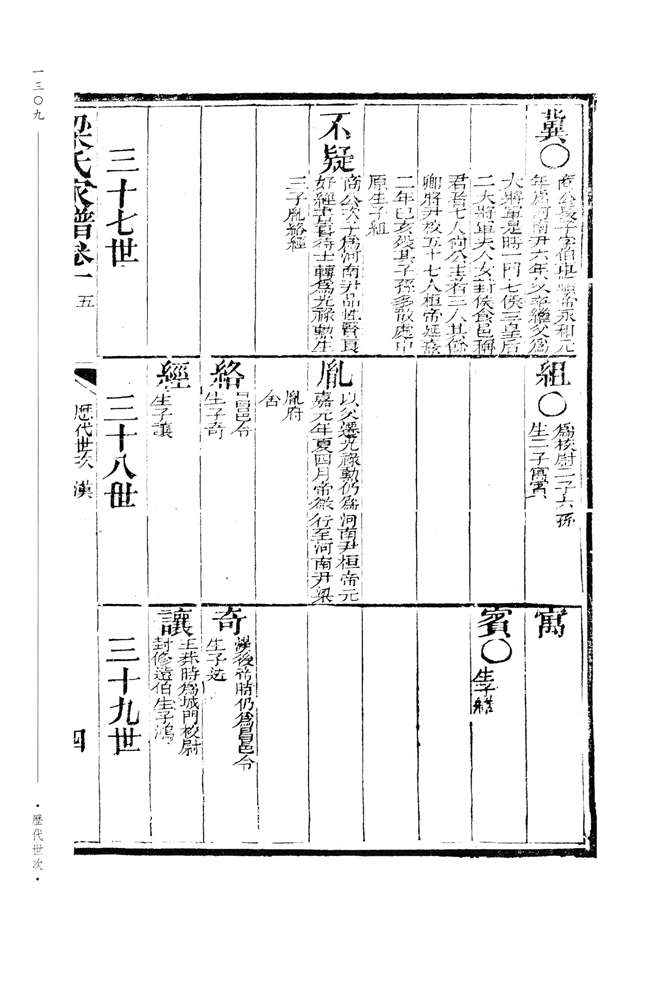 冀〇
商公長子字伯卓順帝永和元
年爲河南尹六年父卒繼父爲
大將軍是時一門七侯三皇后
二大將軍夫人女封侯食邑稱
君者七人尚公主者三人其餘
卿將尹校五十七人桓帝延熹
二年已亥歿其子孫多散處中
原生子組
不疑
商公次子爲河南尹品性賢良
好經書善待士轉爲光祿勳生
三子胤絡經
三十七世
組〇
爲校尉二子六孫
生二子寓賓
胤
以父遷光祿勳仍爲河南尹桓帝元
嘉元年夏四月帝微行至河南尹梁
胤府
舍
絡
昌邑令
生子奇
經
生子讓
三十八世
寓
賓〇
生子繼
奇
漢後帝時仍爲昌邑令
生子
讓
王莽時爲城門校尉
封修遠伯生子鴻
三十九世
梁氏家譜卷一
五
歷代世次
漢
四
一三〇九
·歷代世次·